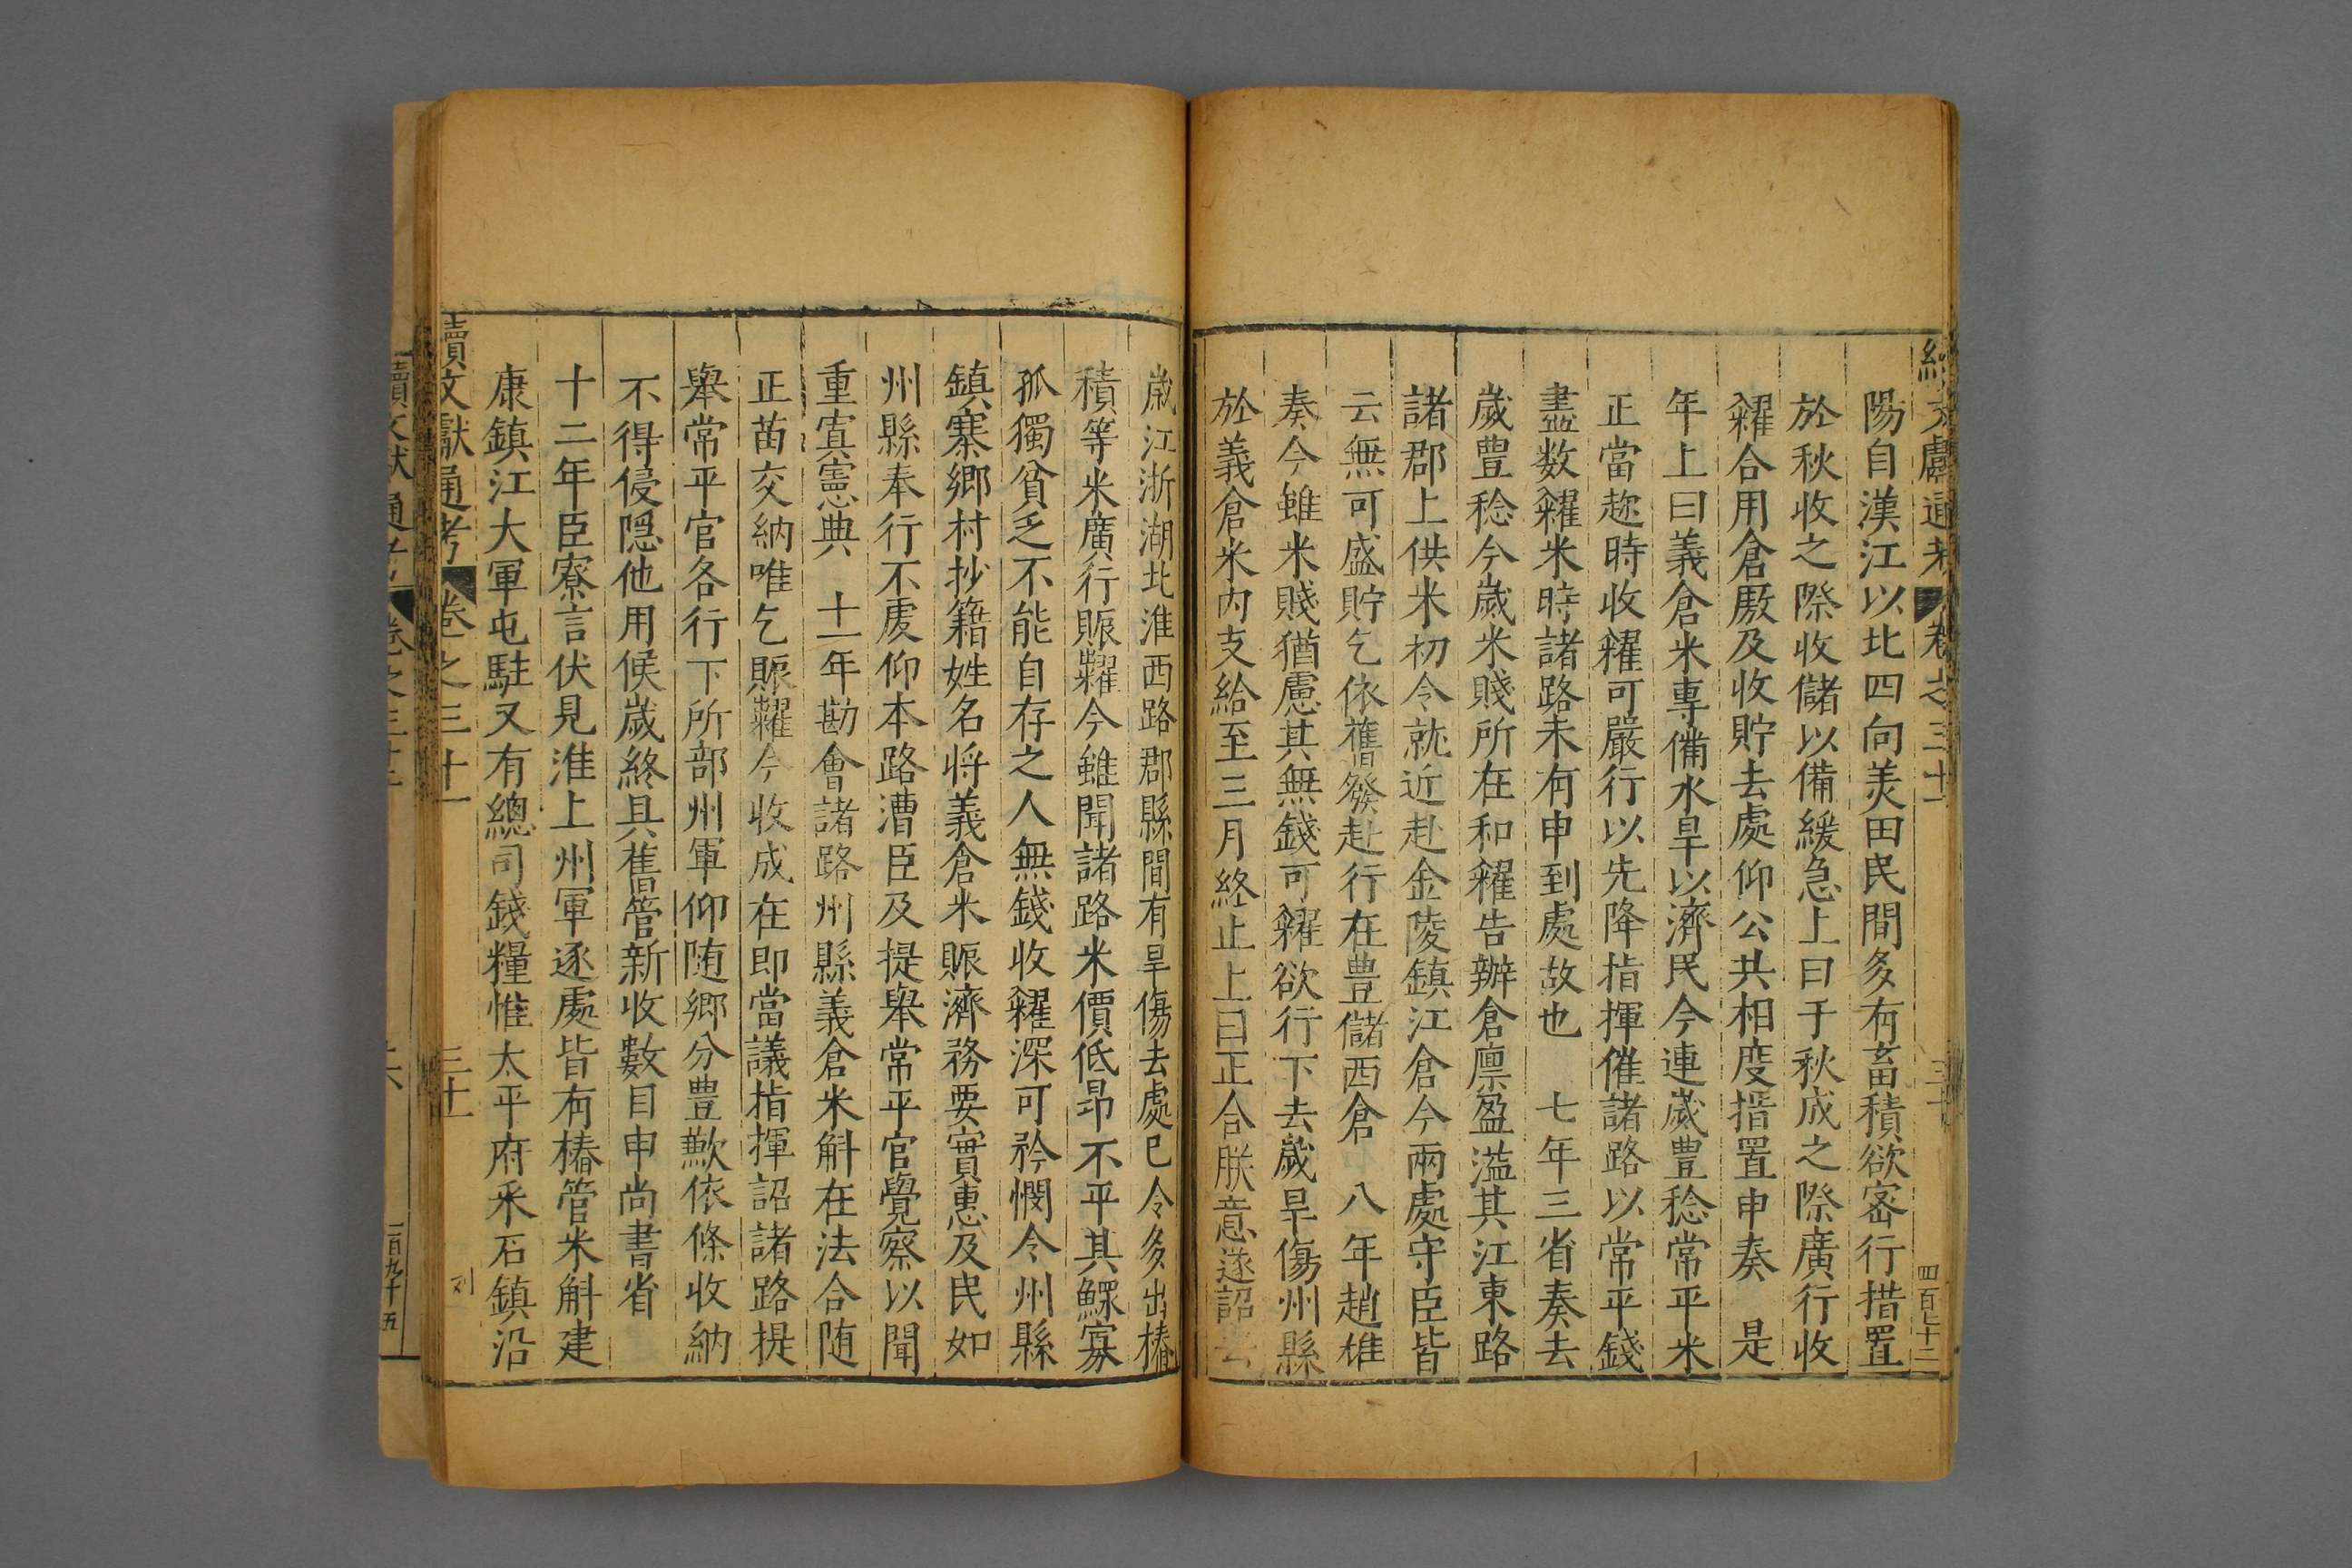 續文獻通考 卷之三十一 三十 四百七十二
陽自漢江以北四向羙田民間多有畜積欲密行措置
於秋收之際收儲以備緩急上曰于秋成之際廣行收
糴合用倉厫及收貯去處仰公共相度措置申奏 是
年上曰義倉米專備水旱以濟民今連歲豊稔常平米
正當趂時收糴可嚴行以先降指揮催諸路以常平錢
盡数糴米時諸路未有申到處故也 七年三省奏去
歲豊稔今歲米賤所在和糴告辦倉廪盈溢其江東路
諸郡上供米初令就近赴金陵鎮江倉今兩處守臣皆
云無可盛貯乞依舊發赴行在豊儲西倉 八年趙雄
奏今雖米賤猶慮其無錢可糴欲行下去歲旱傷州縣
於義倉米内支給至三月終止上曰正合朕意遂詔去
歲江浙湖北淮西路郡縣間有旱傷去處已令多出樁
積等米廣行賑糶今雖聞諸路米價低昂不平其鰥寡
孤獨貧乏不能自存之人無錢收糴深可矜憫令州縣
鎮寨鄉村抄籍姓名将義倉米賑濟務要實惠及民如
州縣奉行不虔仰本路漕臣及提舉常平官覺察以聞
重寘憲典 十一年勘會諸路州縣義倉米斛在法合随
正苗交納唯乞賑糶今收成在即當議指揮詔諸路提
舉常平官各行下所部州軍仰随鄉分豊歉依條收納
不得侵隠他用候歲終具舊管新收數目申尚書省
十二年臣寮言伏見淮上州軍逐處皆有樁管米斛建
康鎮江大軍屯駐又有總司錢糧惟太平府采石鎮沿
續文獻通考 卷之三十一 三十一 刘
續文獻通考 卷之三十 六 二百九十五